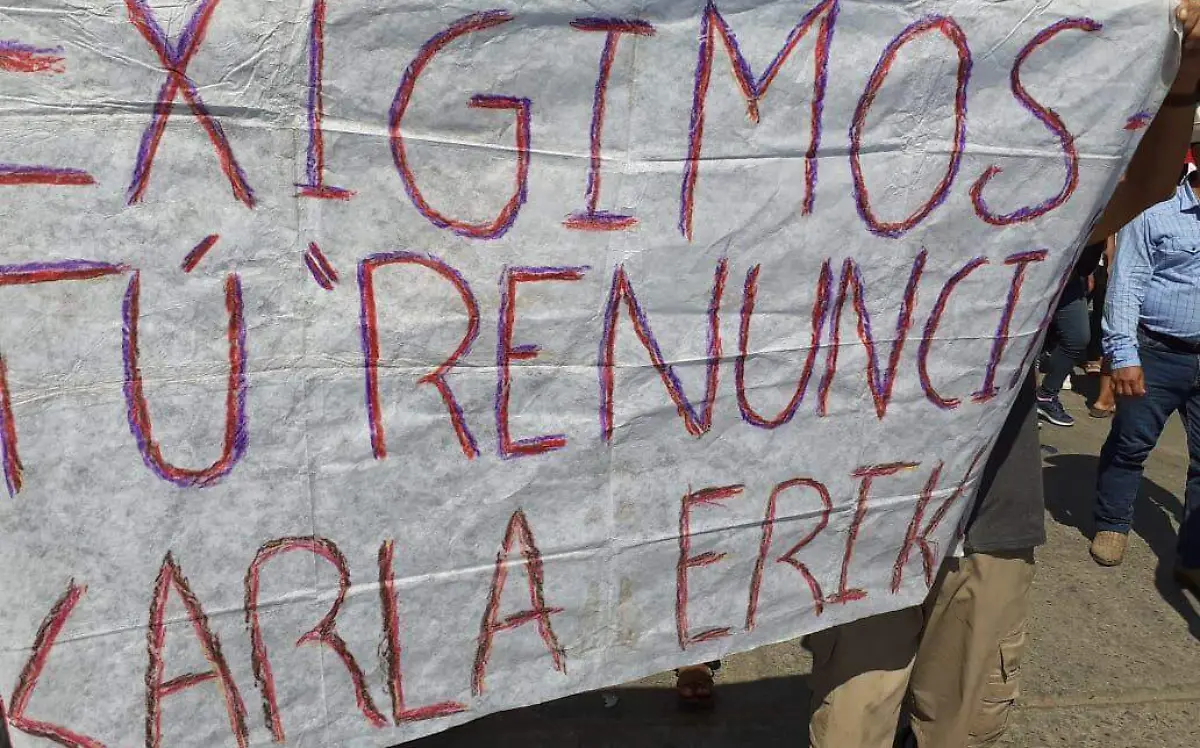 EXIGIMOS
TÚ "RENUNCI
KARLA ERIK